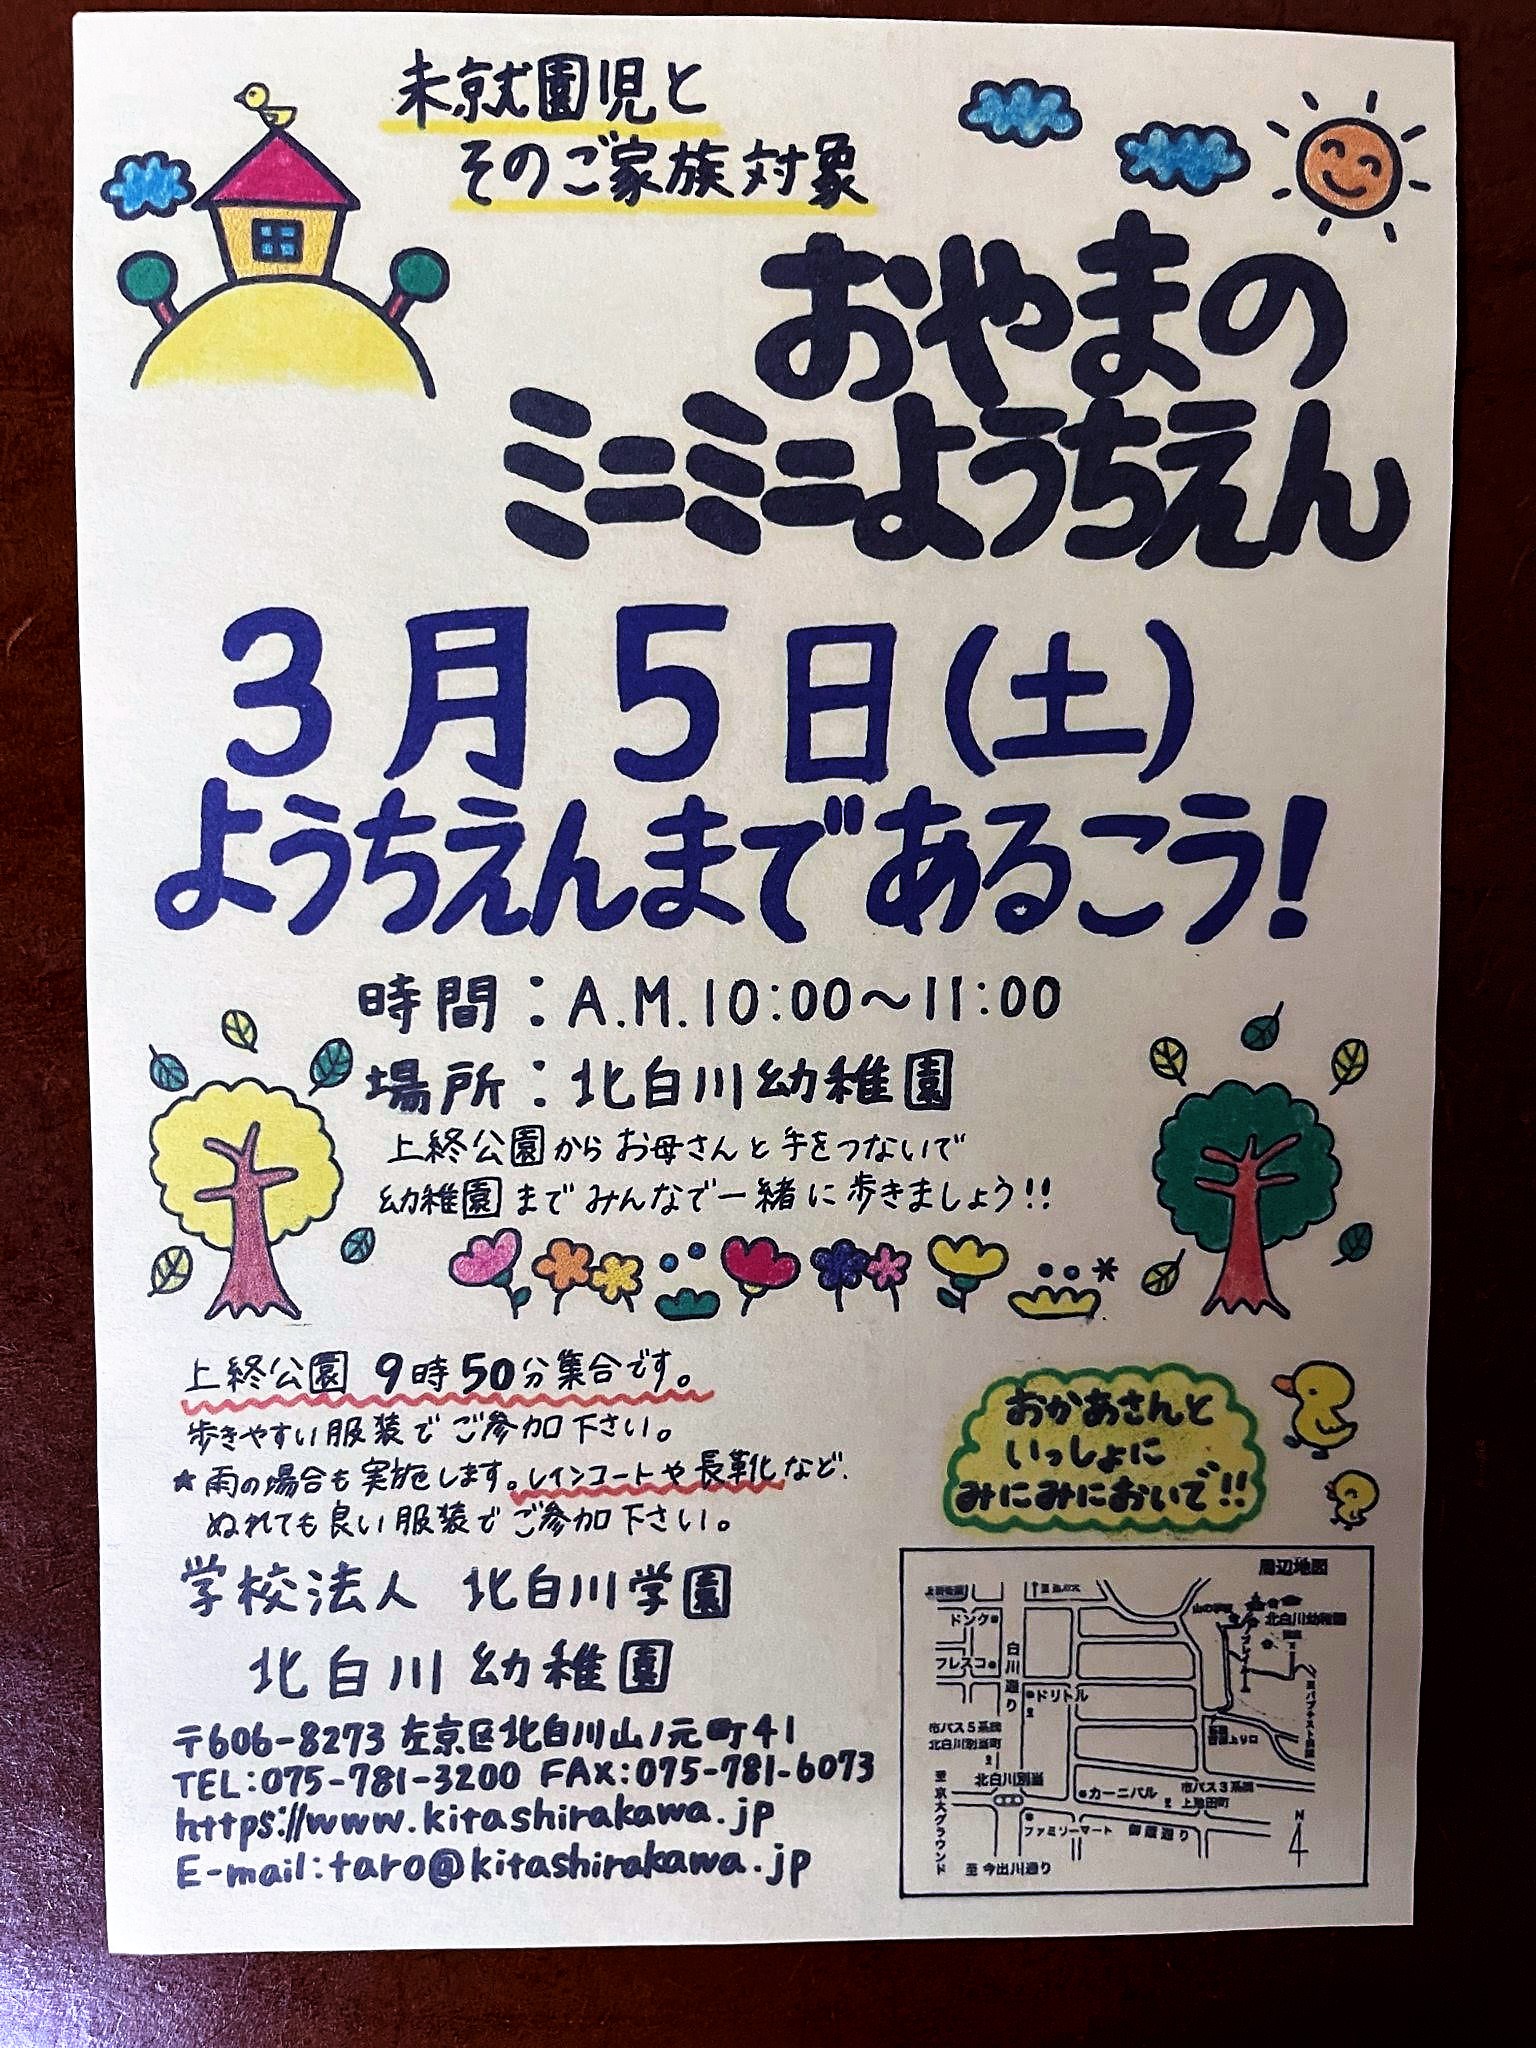 未就園児と
そのご家族対象
おやまの
ミニミニようちえん
3月5日(土)
ようちえんまであるこう!
時間:A.M.10:00〜11:00
場所:北白川幼稚園
上終公園からお母さんと手をつないで
幼稚園までみんなで一緒に歩きましょう!!
上終公園 9時50分集合です。
歩きやすい服装でご参加下さい。
★雨の場合も実施します。レインコートや長靴など、
ぬれても良い服装でご参加下さい。
おかあさんと
いっしょに
みにみにおいで!!
学校法人 北白川学園
北白川幼稚園
〒606-8273 左京区北白川山ノ元町41
TEL:075-781-3200 FAX:075-781-6073
https://www.kitashirakawa.jp
E-mail:taro@kitashirakawa.jp
周辺地図
北白川幼稚園
ドンク
フレスコ
白川通り
ドリトル
市バス5系統
北白川別当町
北白川別当
カーニバル
市バス3系統
上池田町
ファミリーマート
御蔭通り
至京大グラウンド
至今出川通り
N